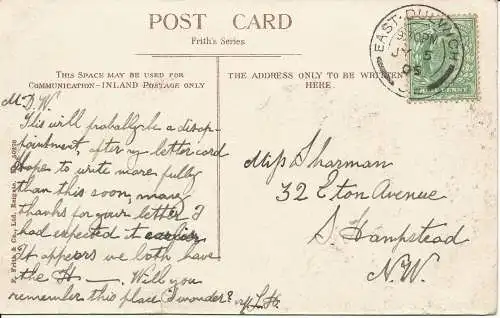 POST CARD
Frith's Series.
THIS SPACE MAY BE USED FOR
COMMUNICATION—INLAND POSTAGE ONLY
THE ADDRESS ONLY TO BE WRITTEN
HERE.
EAST·DULWICH
JY 5
05
HALFPENNY
F. Frith & Co., Ltd., Reigate.
M.D.W.
This will probally be a disap-
pointment, after my letter card
Hope to write more fully
than this soon, many
thanks for your letter I
had expected it earlier
It appears we both have
the H——. Will you
remember this place I wonder?
Miss Sharman
32 Eton Avenue
S. Hampstead
N.W.